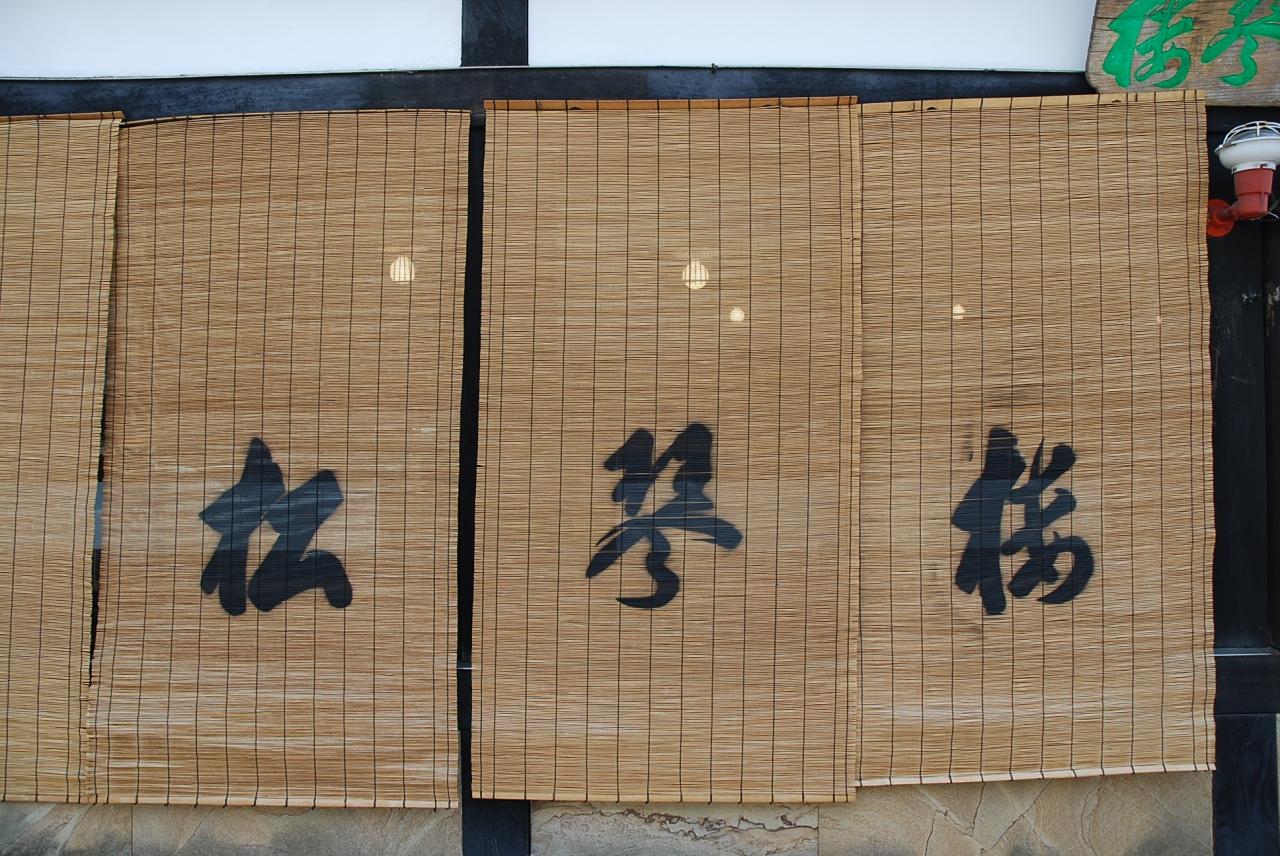 琴楼
松琴楼